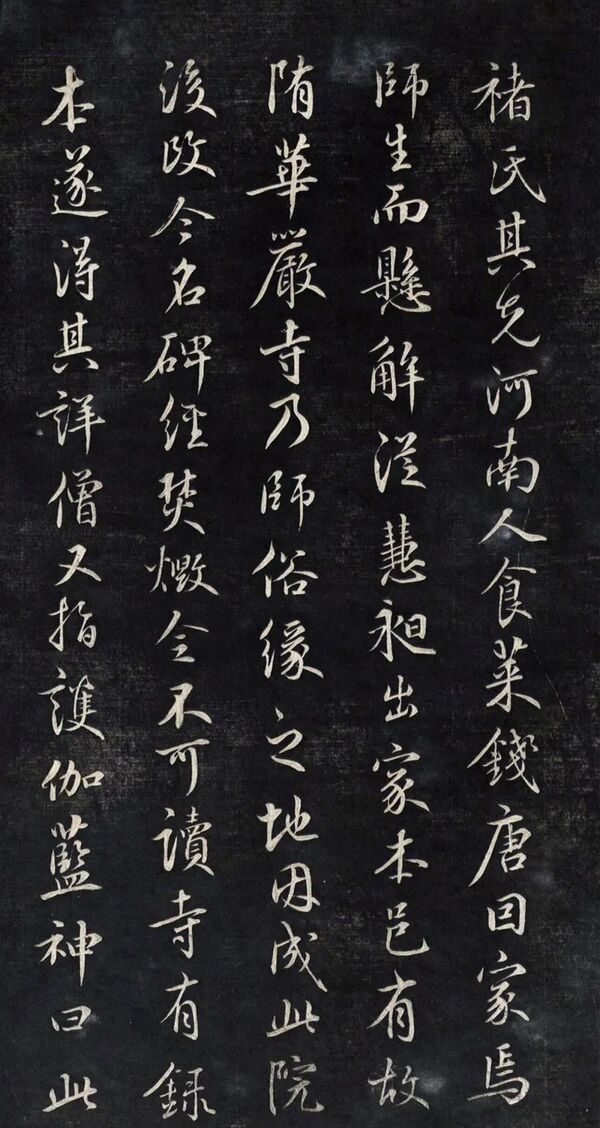 褚氏其先河南人食菜錢唐因家焉
師生而懸解從慧昶出家本邑有故
隋華嚴寺乃師俗緣之地因成此院
後改今名碑經焚燬今不可讀寺有錄
本遂得其詳僧又指護伽藍神曰此